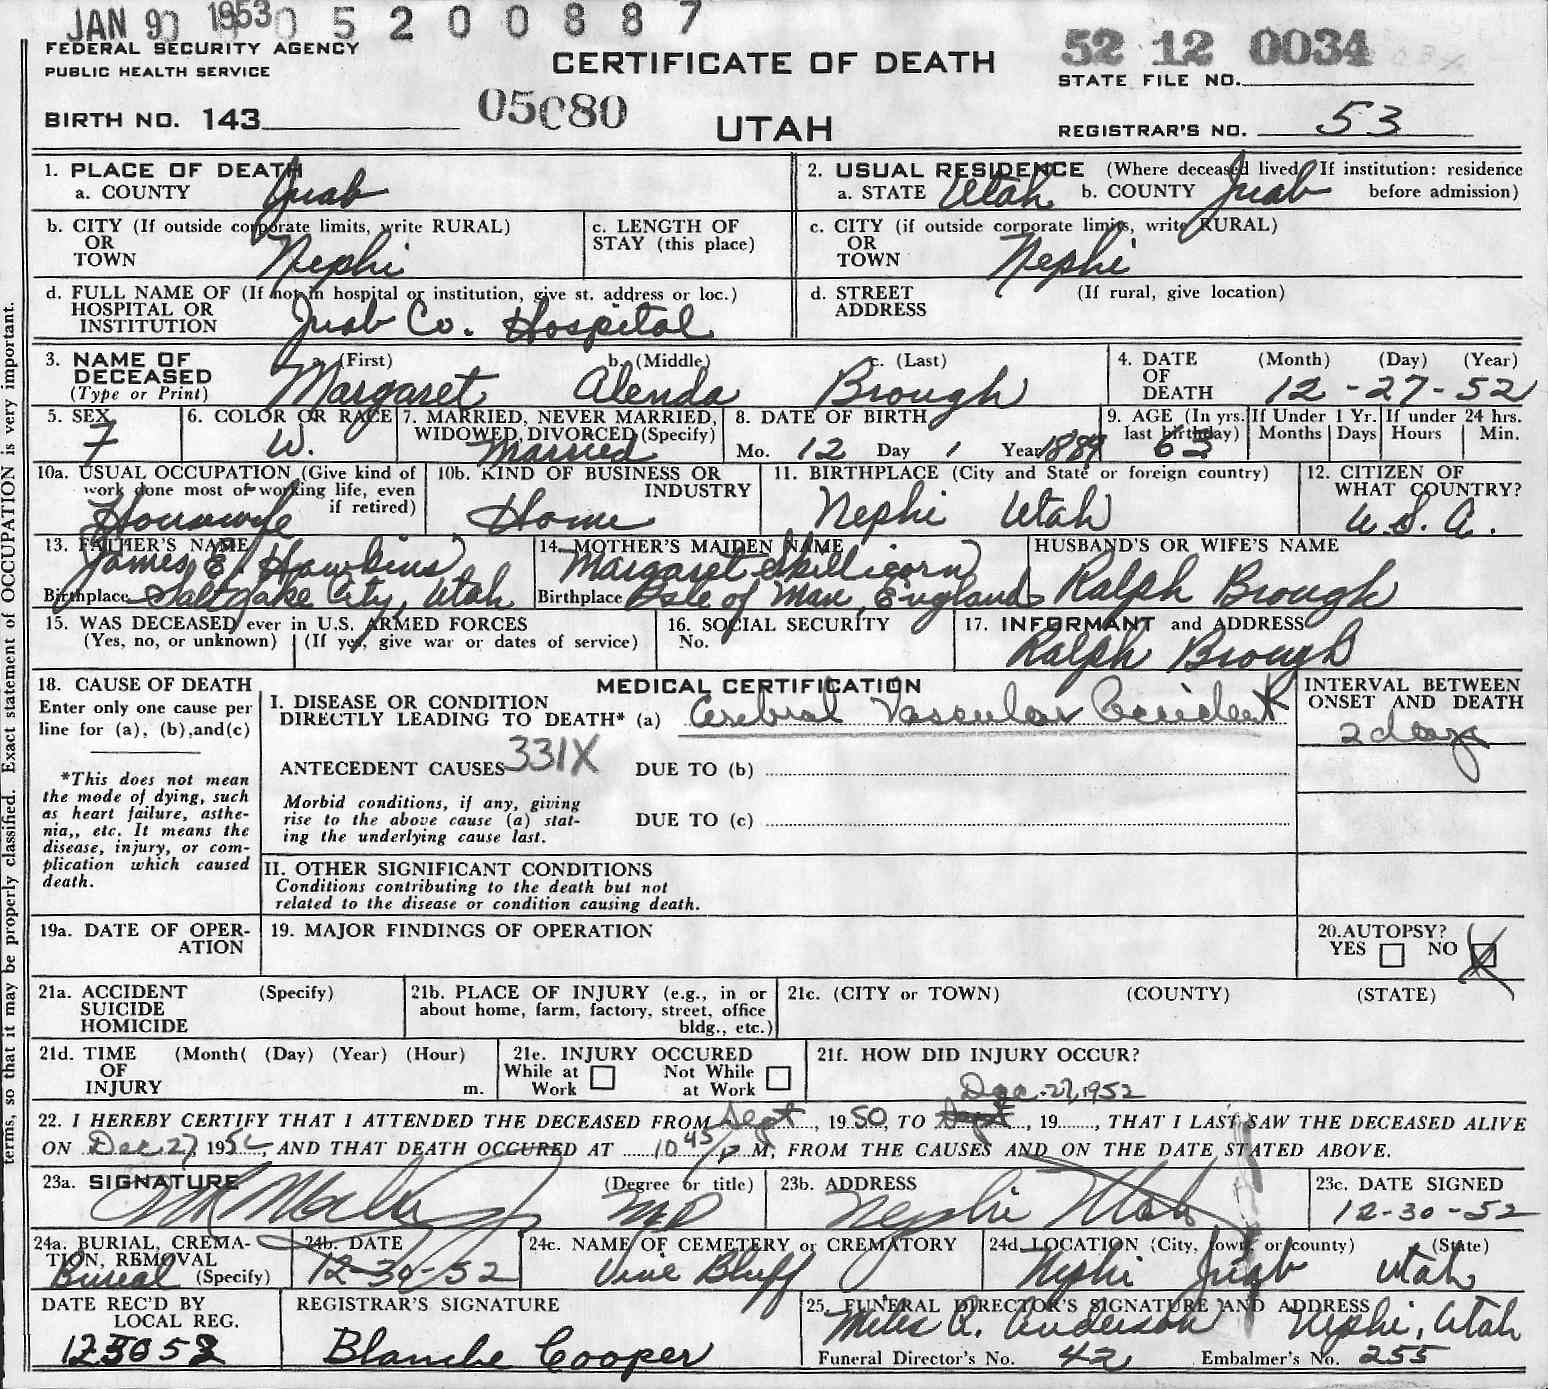 JAN 9 1953 0 5 2 0 0 8 8 7
FEDERAL SECURITY AGENCY
PUBLIC HEALTH SERVICE
CERTIFICATE OF DEATH
52 12 0034
STATE FILE NO.
BIRTH NO. 143
05080
UTAH
REGISTRAR'S NO. 53
1. PLACE OF DEATH
a. COUNTY Juab
2. USUAL RESIDENCE (Where deceased lived. If institution: residence
a. STATE Utah b. COUNTY Juab before admission)
b. CITY (If outside corporate limits, write RURAL)
OR
TOWN Nephi
c. LENGTH OF
STAY (this place)
c. CITY (if outside corporate limits, write RURAL)
OR
TOWN Nephi
d. FULL NAME OF (If not in hospital or institution, give st. address or loc.)
HOSPITAL OR
INSTITUTION Juab Co. Hospital
d. STREET (If rural, give location)
ADDRESS
3. NAME OF DECEASED
(Type or Print)
a. (First) b. (Middle) c. (Last)
Margaret Alenda Brough
4. DATE (Month) (Day) (Year)
OF
DEATH 12-27-52
5. SEX
F
6. COLOR OR RACE
W.
7. MARRIED, NEVER MARRIED,
WIDOWED, DIVORCED (Specify)
Married
8. DATE OF BIRTH
Mo. 12 Day 1 Year 1889
9. AGE (In yrs.
last birthday) 63
If Under 1 Yr.
Months Days
If under 24 hrs.
Hours Min.
10a. USUAL OCCUPATION (Give kind of
work done most of working life, even
if retired)
Housewife
10b. KIND OF BUSINESS OR
INDUSTRY
Home
11. BIRTHPLACE (City and State or foreign country)
Nephi Utah
12. CITIZEN OF
WHAT COUNTRY?
U.S.A.
13. FATHER'S NAME
James E. Hawkins
Birthplace Salt Lake City, Utah
14. MOTHER'S MAIDEN NAME
Margaret Skillicorn
Birthplace Isle of Man, England
HUSBAND'S OR WIFE'S NAME
Ralph Brough
15. WAS DECEASED ever in U.S. ARMED FORCES
(Yes, no, or unknown) (If yes, give war or dates of service)
16. SOCIAL SECURITY
No.
17. INFORMANT and ADDRESS
Ralph Brough
18. CAUSE OF DEATH
Enter only one cause per
line for (a), (b),and(c)
*This does not mean
the mode of dying, such
as heart failure, asthe-
nia,, etc. It means the
disease, injury, or com-
plication which caused
death.
MEDICAL CERTIFICATION
I. DISEASE OR CONDITION
DIRECTLY LEADING TO DEATH* (a) Cerebral Vascular Accident
INTERVAL BETWEEN
ONSET AND DEATH
2 days
ANTECEDENT CAUSES 331X DUE TO (b)
Morbid conditions, if any, giving
rise to the above cause (a) stat-
ing the underlying cause last.
DUE TO (c)
II. OTHER SIGNIFICANT CONDITIONS
Conditions contributing to the death but not
related to the disease or condition causing death.
19a. DATE OF OPER-
ATION
19. MAJOR FINDINGS OF OPERATION
20.AUTOPSY?
YES NO X
21a. ACCIDENT (Specify)
SUICIDE
HOMICIDE
21b. PLACE OF INJURY (e.g., in or
about home, farm, factory, street, office
bldg., etc.)
21c. (CITY or TOWN) (COUNTY) (STATE)
21d. TIME (Month( (Day) (Year) (Hour)
OF
INJURY m.
21e. INJURY OCCURED
While at Work Not While at Work
21f. HOW DID INJURY OCCUR?
Dec. 27, 1952
22. I HEREBY CERTIFY THAT I ATTENDED THE DECEASED FROM Sept, 1950, TO Sept, 19......, THAT I LAST SAW THE DECEASED ALIVE
ON Dec 27, 1952, AND THAT DEATH OCCURED AT 10 45 P M, FROM THE CAUSES AND ON THE DATE STATED ABOVE.
23a. SIGNATURE (Degree or title)
MD
23b. ADDRESS
Nephi Utah
23c. DATE SIGNED
12-30-52
24a. BURIAL, CREMA-
TION, REMOVAL
Burial (Specify)
24b. DATE
12-30-52
24c. NAME OF CEMETERY or CREMATORY
Vine Bluff
24d. LOCATION (City, town, or county) (State)
Nephi Juab Utah
DATE REC'D BY
LOCAL REG.
123052
REGISTRAR'S SIGNATURE
Blanche Cooper
25. FUNERAL DIRECTOR'S SIGNATURE AND ADDRESS
Miles A. Anderson Nephi, Utah
Funeral Director's No. 42 Embalmer's No. 255
terms, so that it may be properly classified. Exact statement of OCCUPATION is very important.